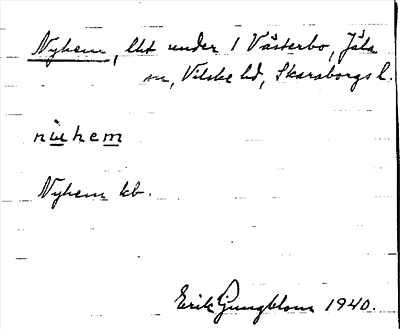 Nyhem, lht under 1 Västerbo, Jäla
sn, Vilske hd, Skaraborgs l.
nùhem
Nyhem kb.
Erik Ljungblom 1940.